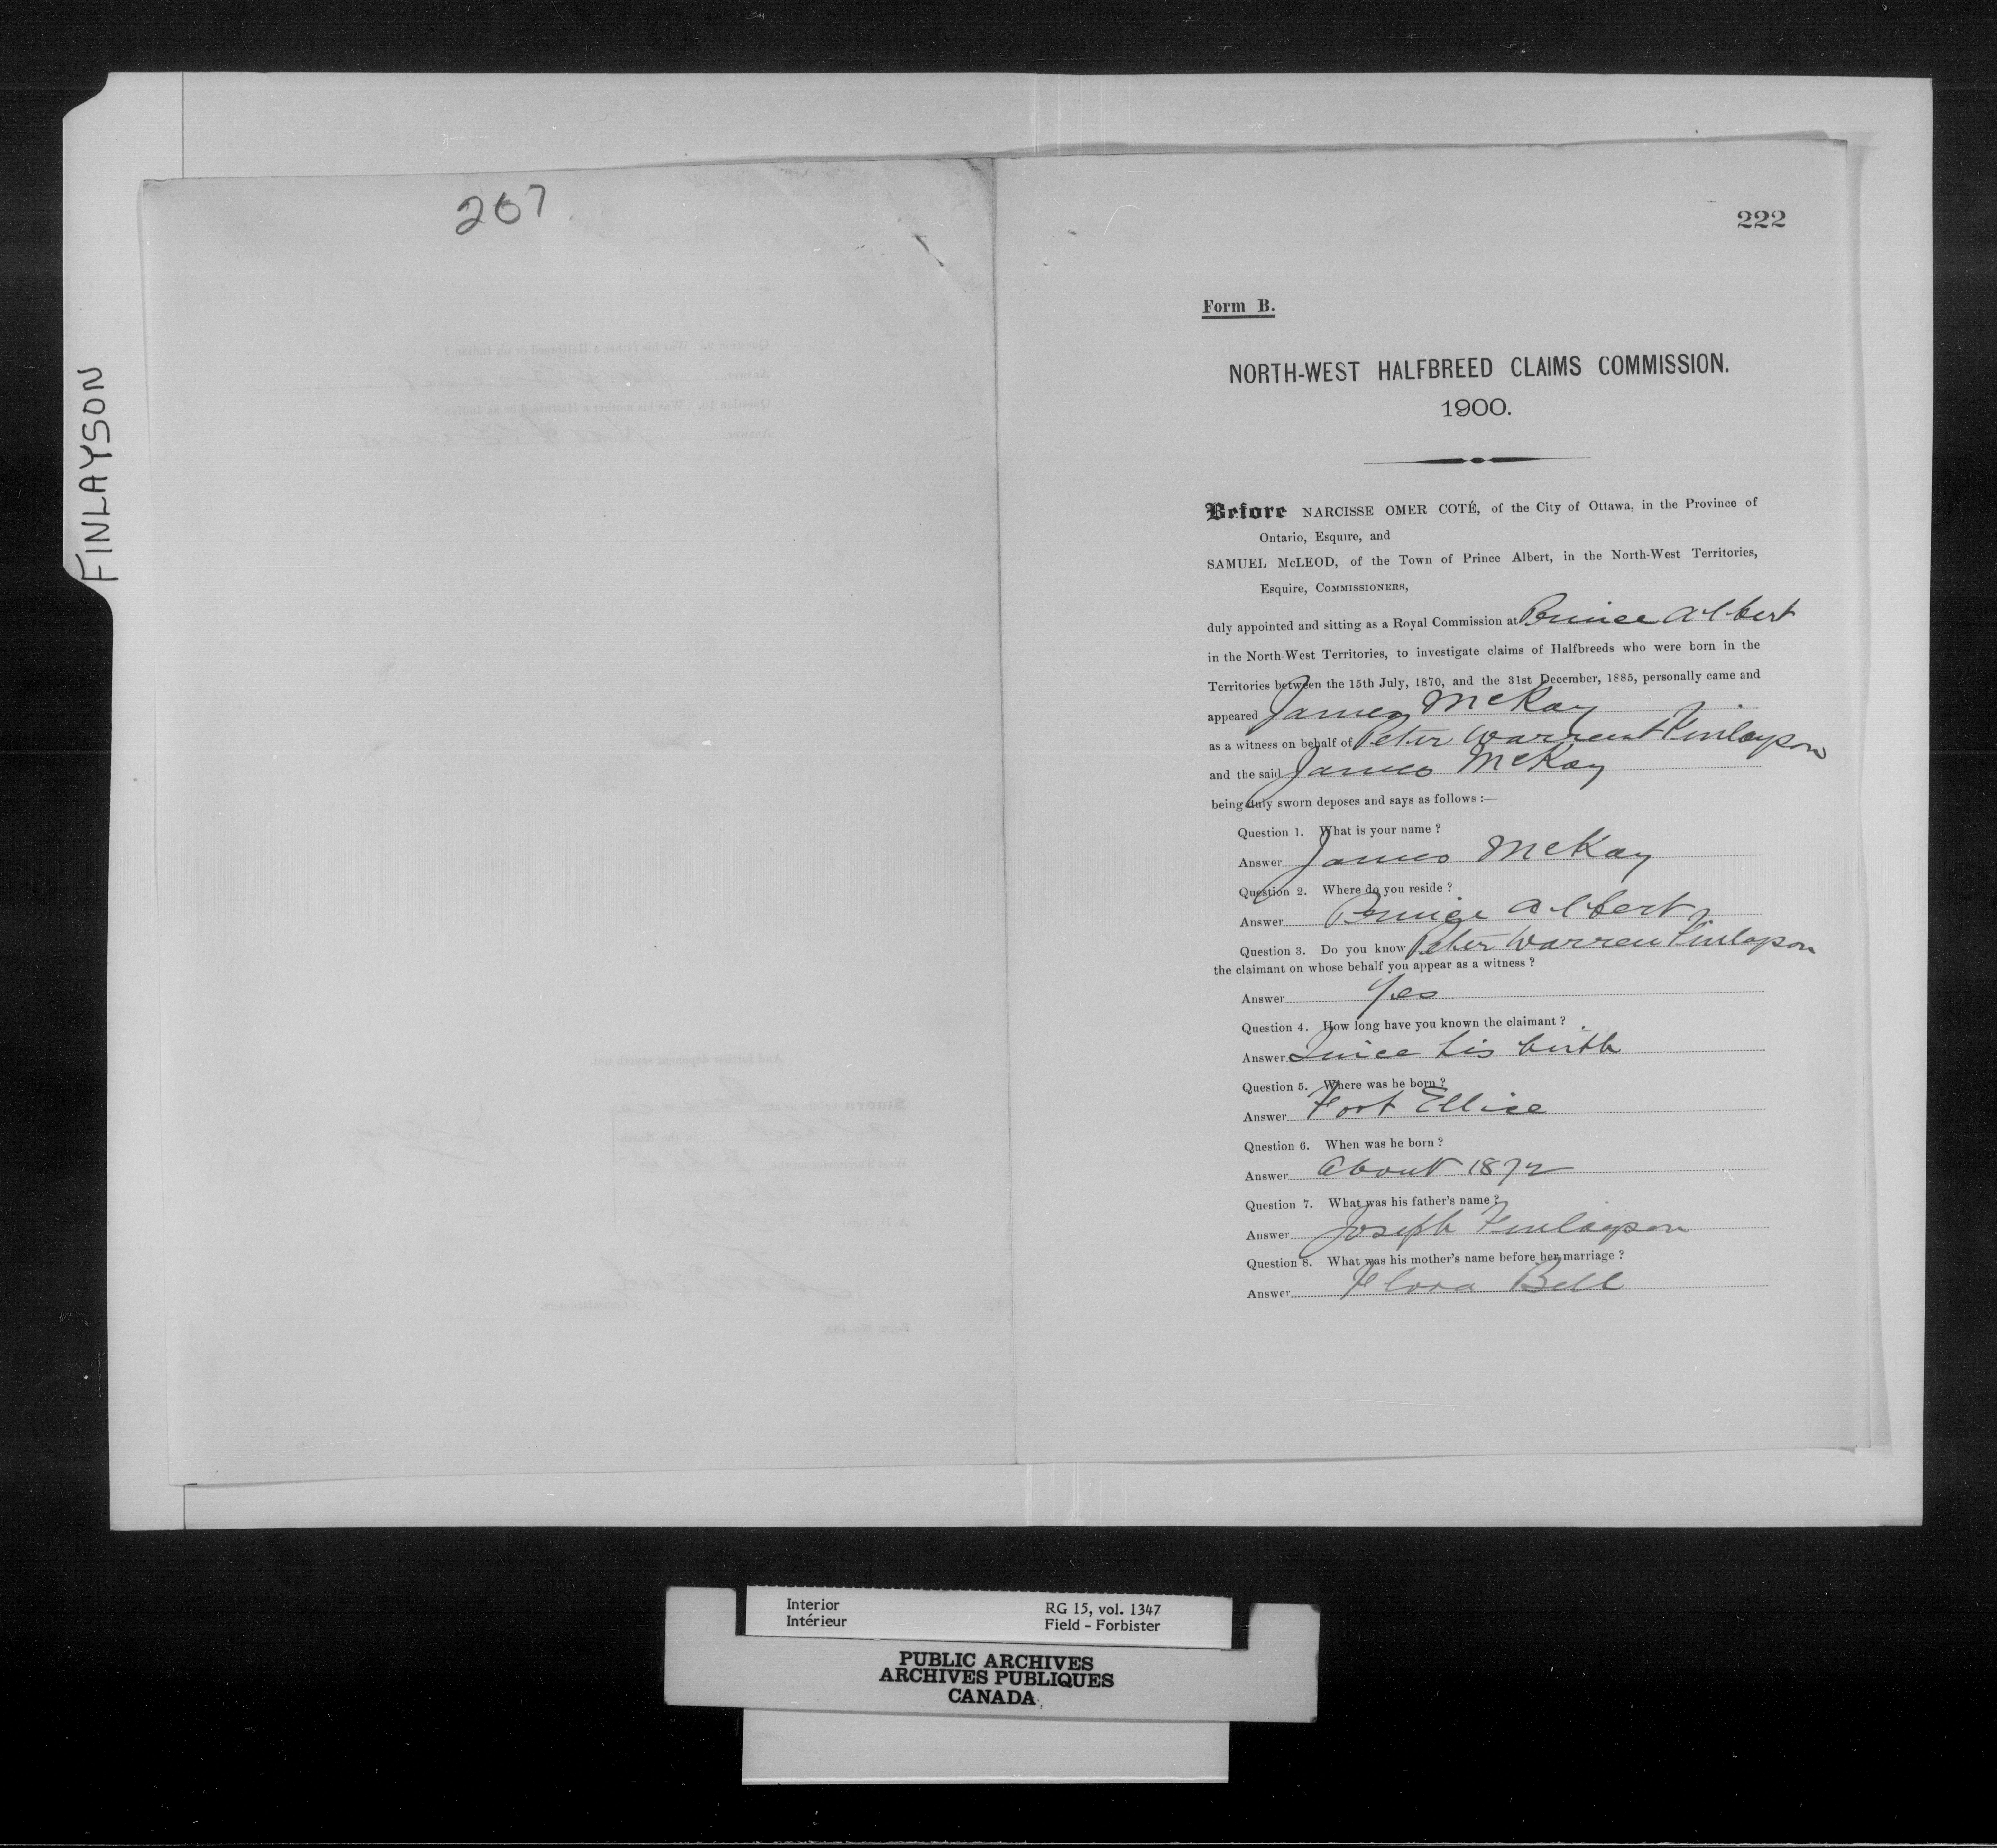 FINLAYSON
207
222
Form B.
NORTH-WEST HALFBREED CLAIMS COMMISSION.
1900.
Before NARCISSE OMER COTÉ, of the City of Ottawa, in the Province of
Ontario, Esquire, and
SAMUEL McLEOD, of the Town of Prince Albert, in the North-West Territories,
Esquire, COMMISSIONERS,
duly appointed and sitting as a Royal Commission at Prince Albert
in the North-West Territories, to investigate claims of Halfbreeds who were born in the
Territories between the 15th July, 1870, and the 31st December, 1885, personally came and
appeared James McKay
as a witness on behalf of Peter Warren Finlayson
and the said James McKay
being duly sworn deposes and says as follows :—
Question 1. What is your name ?
Answer James McKay
Question 2. Where do you reside ?
Answer Prince Albert
Question 3. Do you know Peter Warren Finlayson
the claimant on whose behalf you appear as a witness ?
Answer Yes
Question 4. How long have you known the claimant ?
Answer Since his birth
Question 5. Where was he born ?
Answer Fort Ellice
Question 6. When was he born ?
Answer About 1872
Question 7. What was his father's name ?
Answer Joseph Finlayson
Question 8. What was his mother's name before her marriage ?
Answer Flora Bell
Interior RG 15, vol. 1347
Intérieur Field - Forbister
PUBLIC ARCHIVES
ARCHIVES PUBLIQUES
CANADA